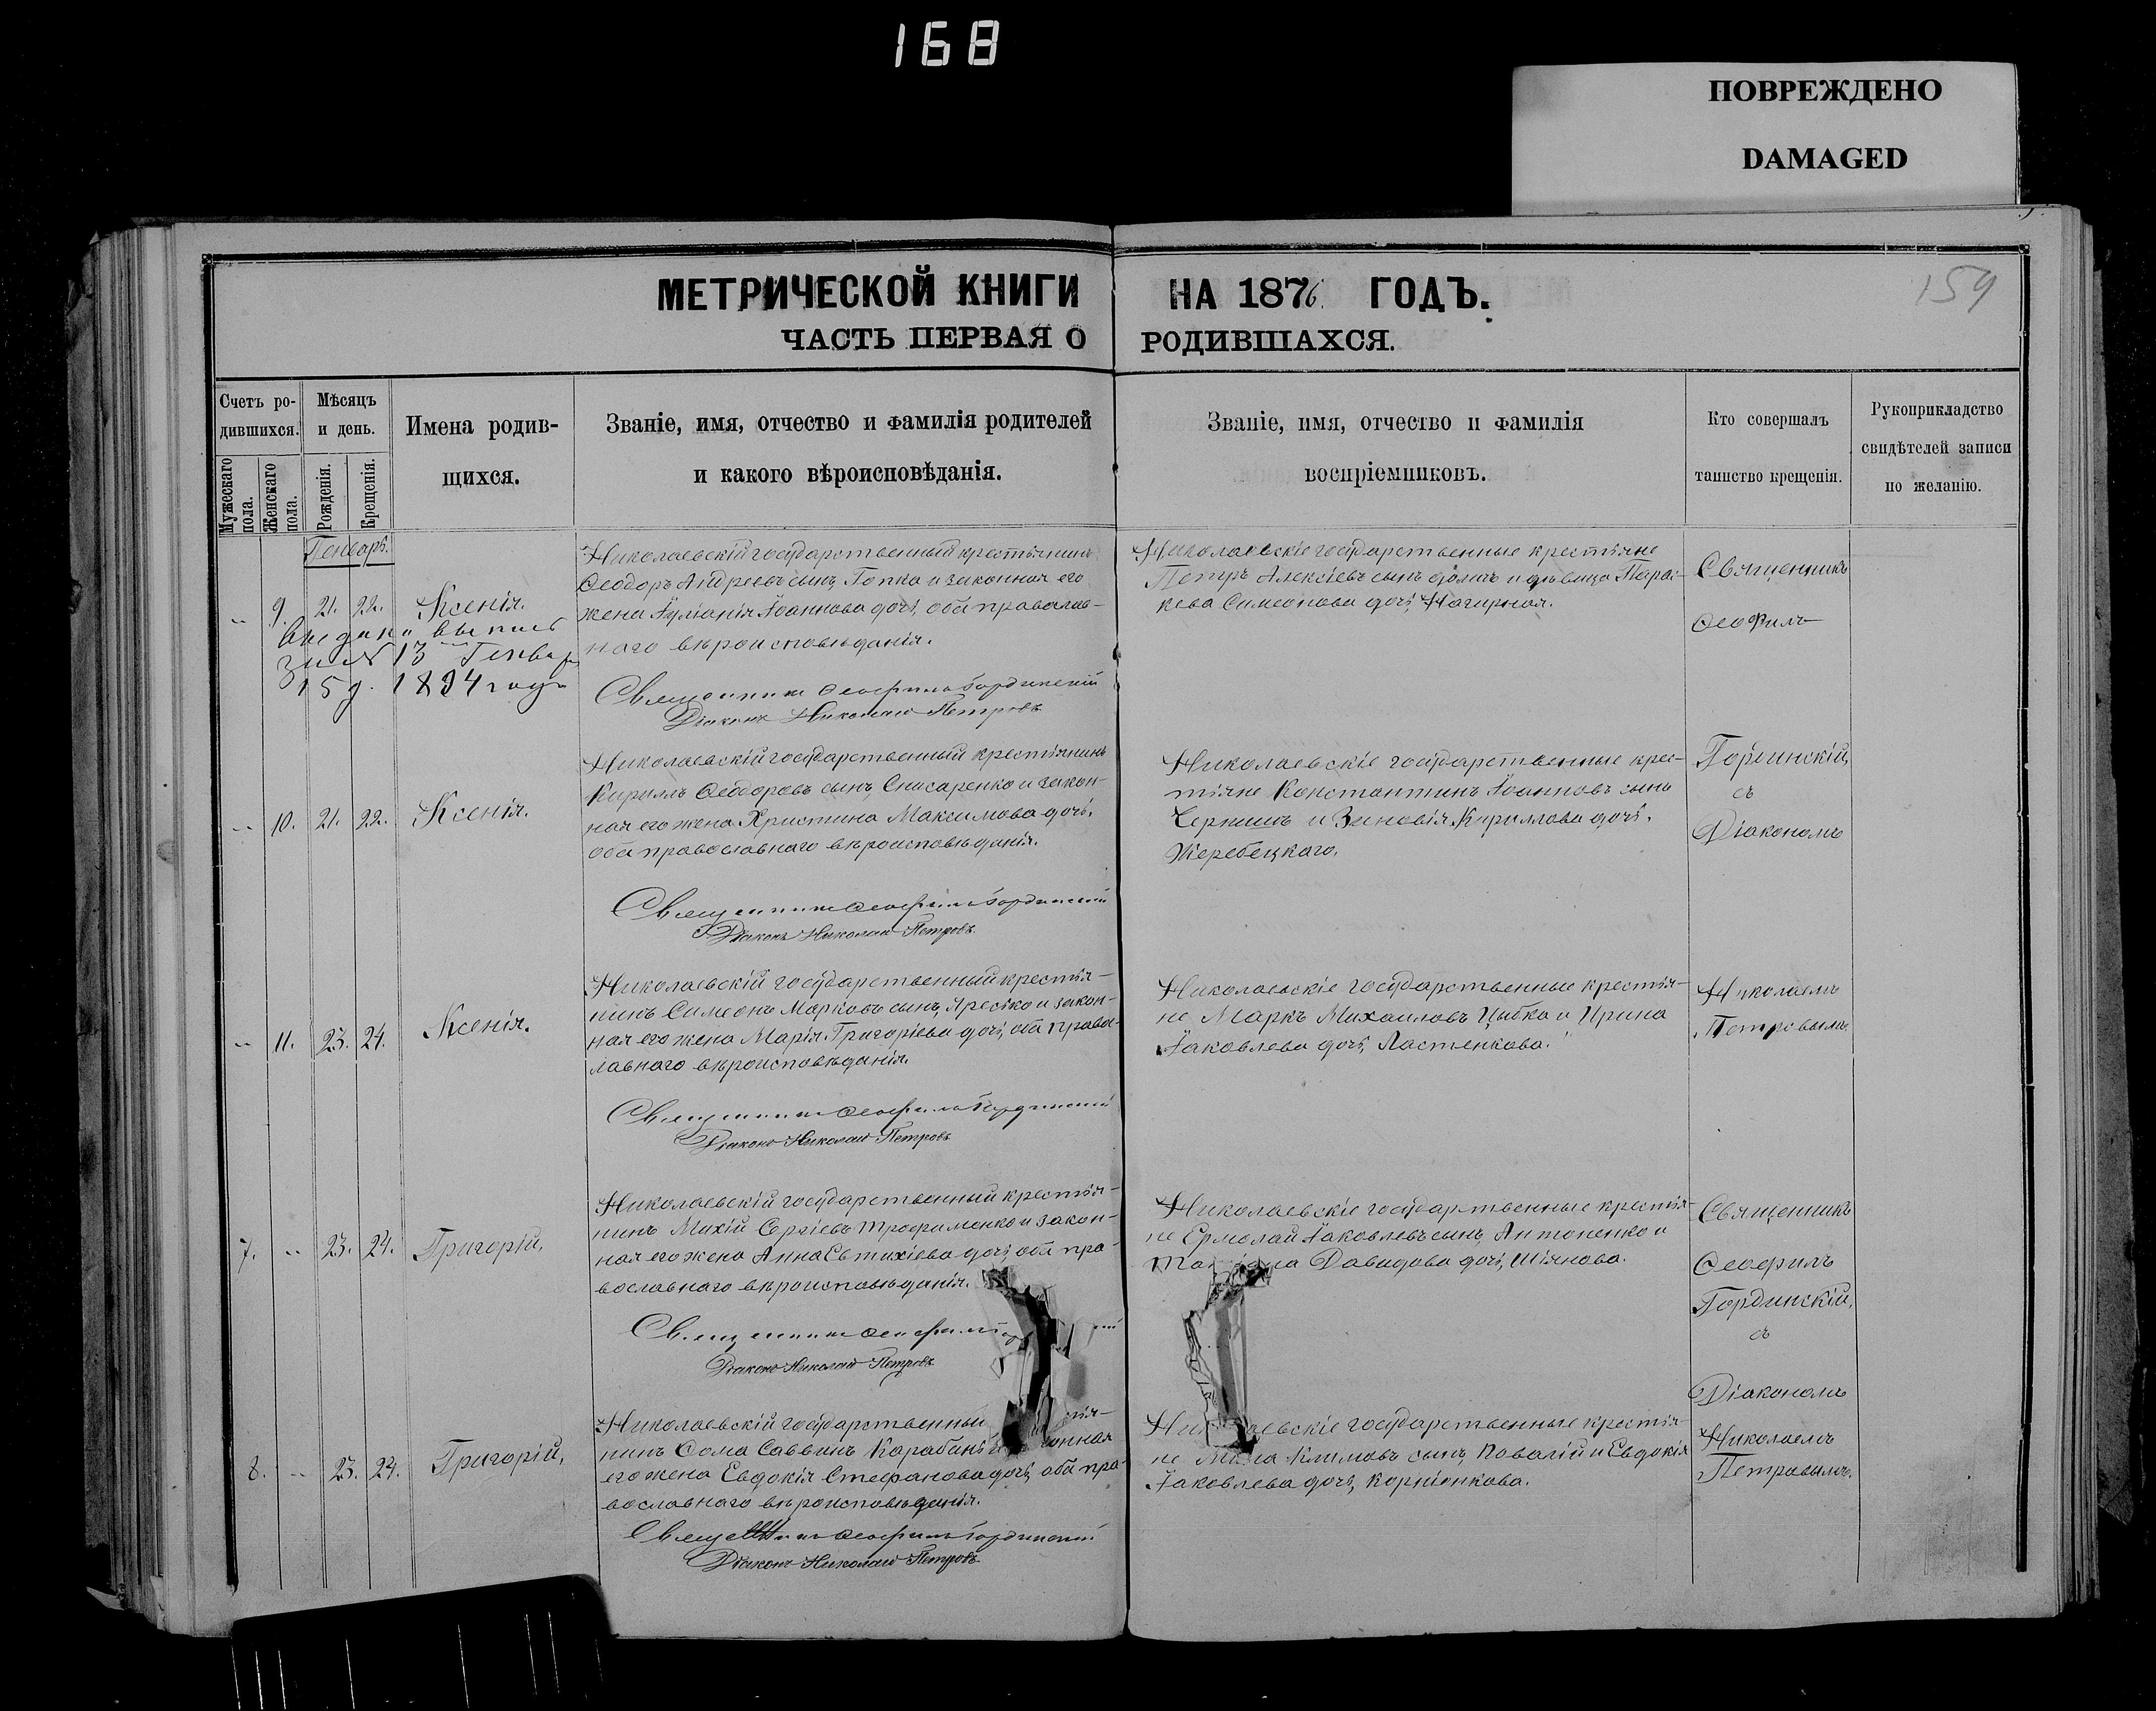 168
ПОВРЕЖДЕНО
DAMAGED
159
МЕТРИЧЕСКОЙ КНИГИ НА 1876 ГОДЪ.
ЧАСТЬ ПЕРВАЯ О РОДИВШАХСЯ.
Счетъ ро-
дившихся.
Мужескаго
пола.
Женскаго
пола.
Мѣсяцъ
и день.
Рожденія.
Крещенія.
Имена родив-
щихся.
Званіе, имя, отчество и фамилія родителей
и какого вѣроисповѣданія.
Званіе, имя, отчество и фамилія
воспріемниковъ.
Кто совершалъ
таинство крещенія.
Рукоприкладство
свидѣтелей записи
по желанію.
Генварь.
" 9. 21. 22. Ксенія.
выпись
№ 13 Генваря
15 д. 1894 года
Николаевскій государственный крестьянинъ
Ѳеодоръ Андреевъ сынъ, Гопка и законная его
жена Іуліанія Іоаннова дочь, оба православ-
наго вѣроисповѣданія.
Священникъ Ѳеофилъ Гординскій
Діаконъ Николай Петровъ
Николаевскіе государственные крестьяне
Петръ Алексіевъ сынъ и дѣвица Парас-
кева Симеонова дочь, Нагирная.
Священникъ
Ѳеофилъ
" 10. 21. 22. Ксенія.
Николаевскій государственный крестьянинъ
Кириллъ Ѳеодоровъ сынъ, Снисаренко и закон-
ная его жена Христина Максимова дочь,
оба православнаго вѣроисповѣданія.
Священникъ Ѳеофилъ Гординскій
Діаконъ Николай Петровъ.
Николаевскіе государственные крес-
тьяне Константинъ Іоанновъ сынъ
и Зиновія Кириллова дочь,
Жеребецкаго.
Гординскій,
съ
Діакономъ
" 11. 23. 24. Ксенія.
Николаевскій государственный крестья-
нинъ Симеонъ Марковъ сынъ, и закон-
ная его жена Марія Григоріева дочь, оба правос-
лавнаго вѣроисповѣданія.
Священникъ Ѳеофилъ Гординскій
Діаконъ Николай Петровъ
Николаевскіе государственные крестья-
не Маркъ Михаиловъ Цыбка и Ирина
Іаковлева дочь, Ластенкова.
Николаемъ
Петровымъ
7. " 23. 24. Григорій,
Николаевскій государственный крестья-
нинъ Мокій Сергіевъ Трофименко и закон-
ная его жена Анна Евтихіева дочь, оба пра-
вославнаго вѣроисповѣданія.
Священникъ Ѳеофилъ
Діаконъ Николай Петровъ
Николаевскіе государственные крестья-
не Ермолай Іаковлевъ сынъ, Антоненко и
Давидова дочь, Шіянова.
Священникъ
Ѳеофилъ
Гординскій,
съ
8. " 23. 24. Григорій,
Николаевскій государственный
нинъ Ѳома Саввинъ
его жена Евдокія Стефанова дочь, оба пра-
вославнаго вѣроисповѣданія.
Священникъ Ѳеофилъ Гординскій
Діаконъ Николай Петровъ.
Николаевскіе государственные крестья-
не Климовъ сынъ, Повалій и Евдокія
Іаковлева дочь, Корніенкова.
Діакономъ
Николаемъ
Петровымъ.